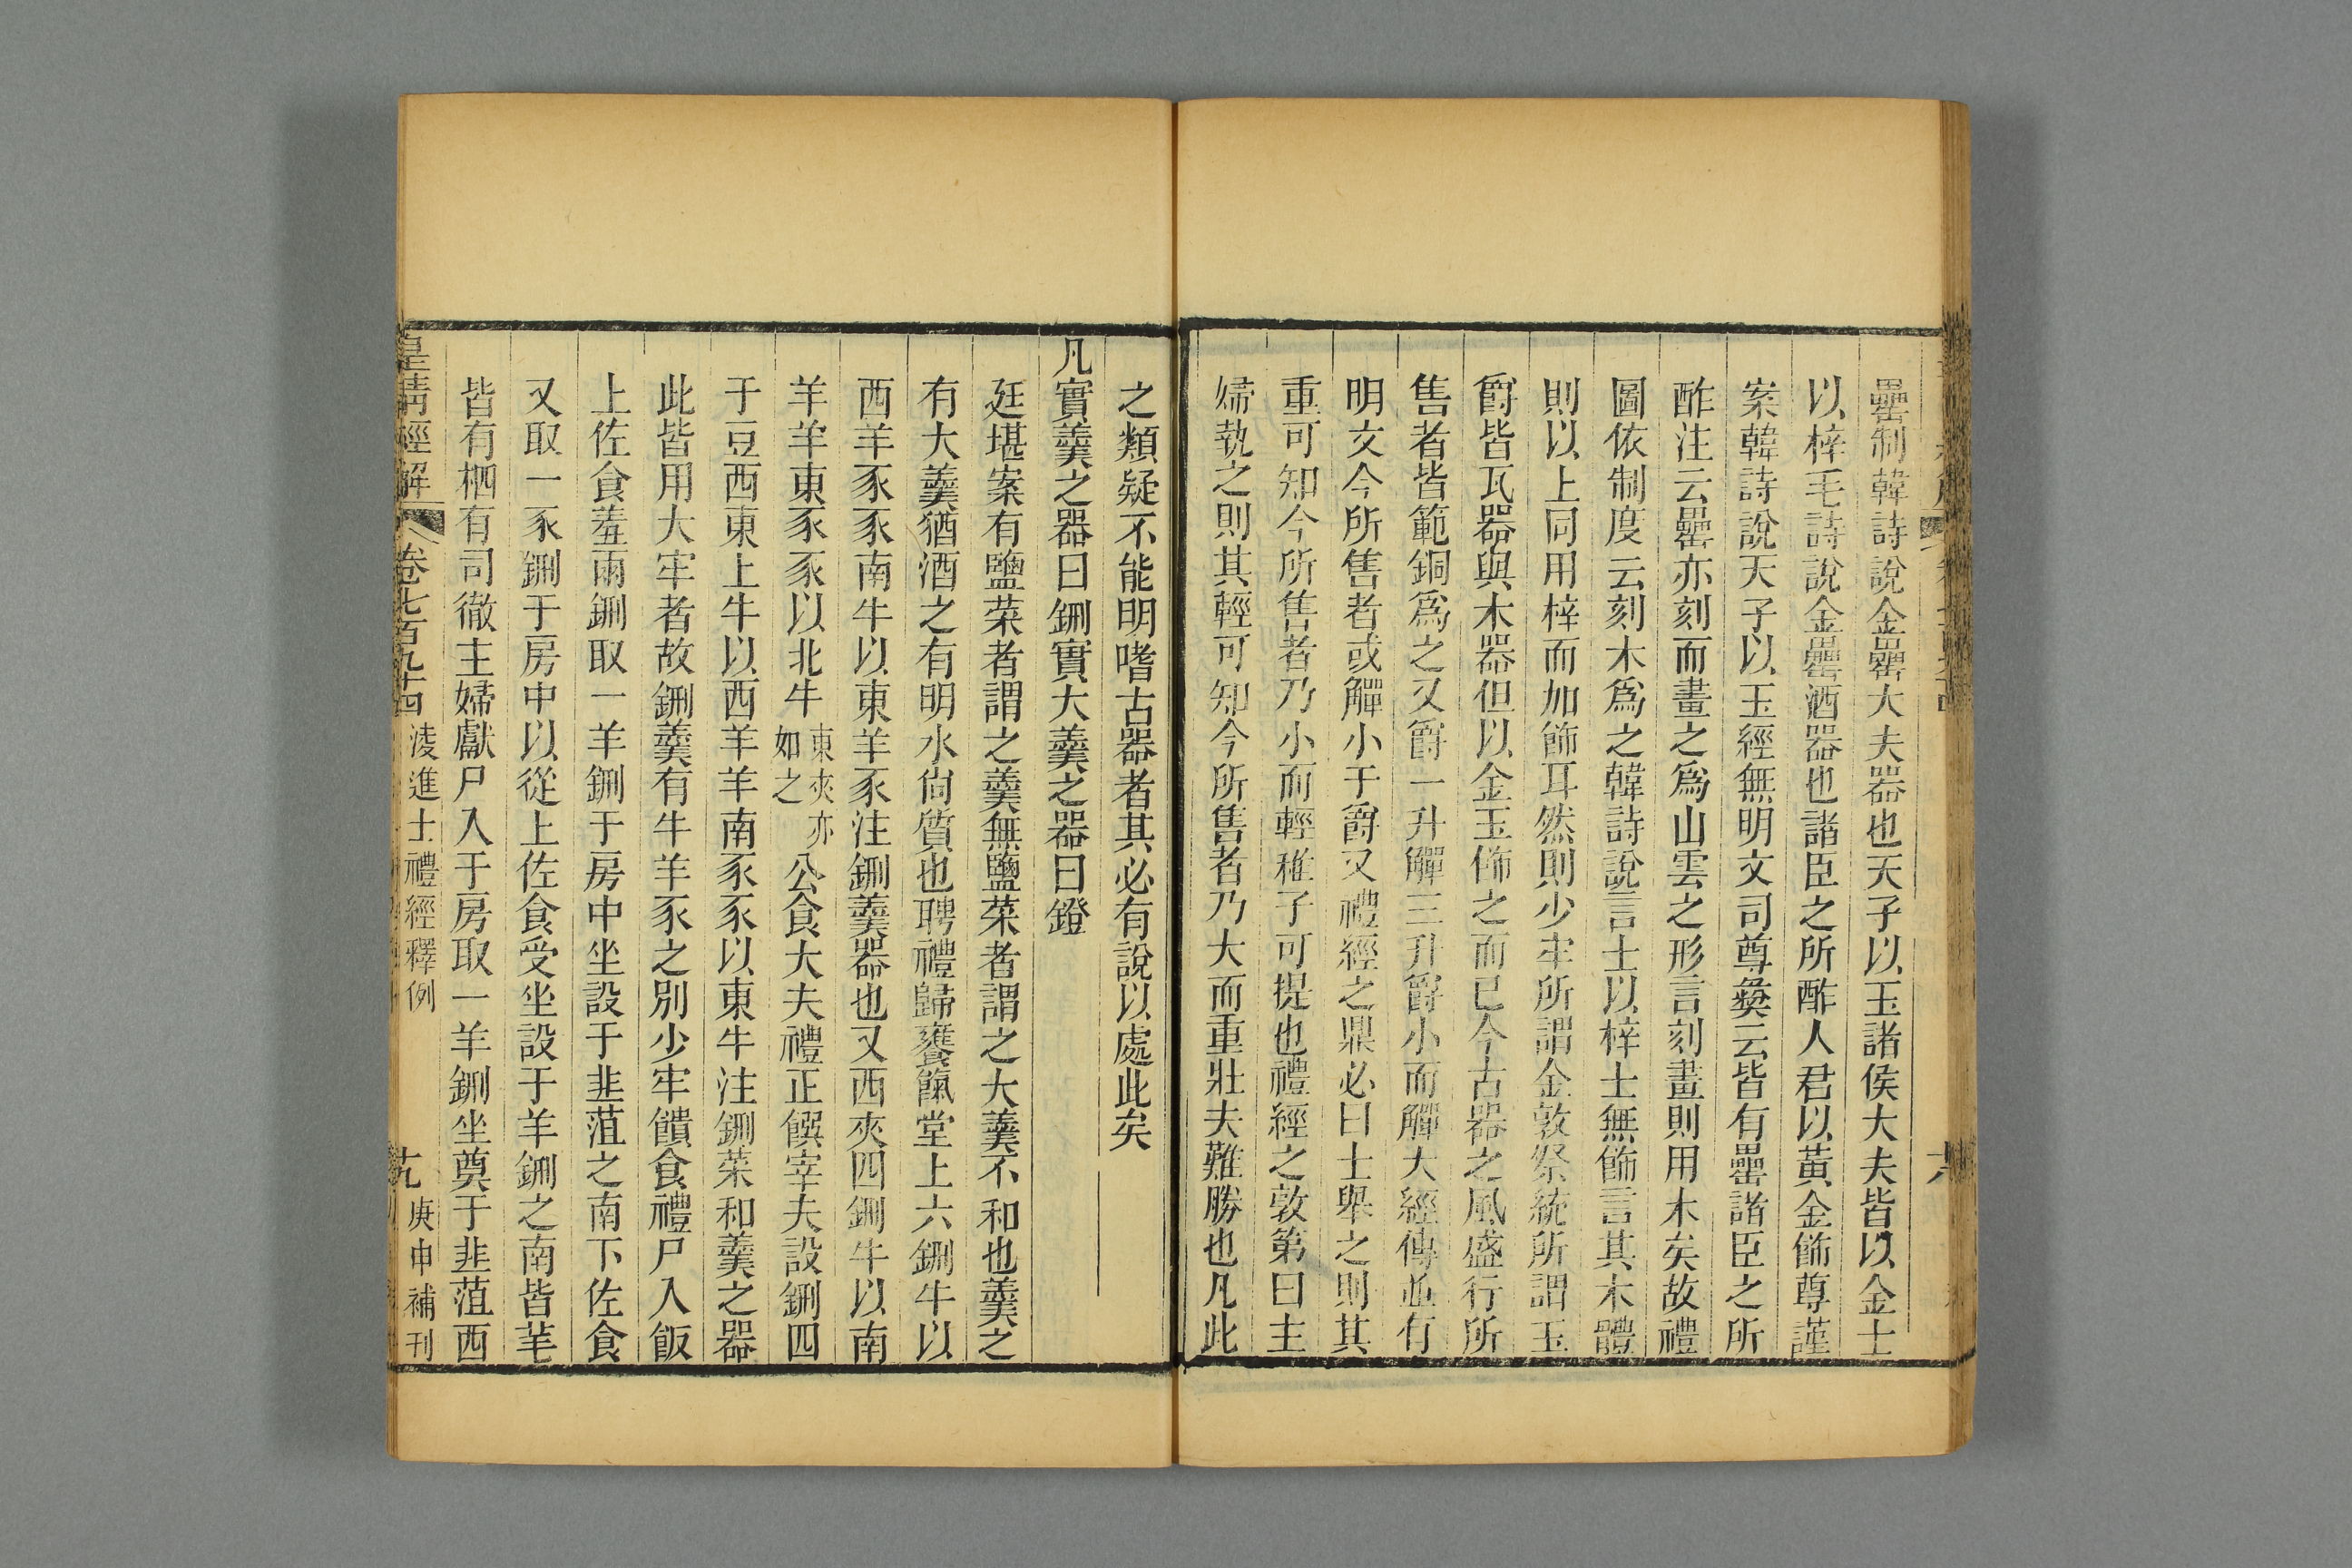 罍制韓詩說金罍大夫器也天子以玉諸侯大夫皆以金士
以梓毛詩說金罍酒器也諸臣之所酢人君以黃金飾尊謹
案韓詩說天子以玉經無明文司尊彝云皆有罍諸臣之所
酢注云罍亦刻而畫之爲山雲之形言刻畫則用木矣故禮
圖依制度云刻木爲之韓詩說言士以梓士無飾言其木體
則以上同用梓而加飾耳然則少牢所謂金敦祭統所謂玉
爵皆瓦器與木器但以金玉飾之而已今古器之風盛行所
售者皆範銅爲之又爵一升觶三升爵小而觶大經傳並有
明文今所售者或觶小于爵又禮經之鼎必曰士舉之則其
重可知今所售者乃小而輕稚子可提也禮經之敦第曰主
婦執之則其輕可知今所售者乃大而重壯夫難勝也凡此
之類疑不能明嗜古器者其必有說以處此矣
凡實羹之器曰鉶實大羹之器曰鐙
廷堪案有鹽菜者謂之羹無鹽菜者謂之大羹不和也羹之
有大羹猶酒之有明水尙質也聘禮歸饔餼堂上六鉶牛以
西羊豕豕南牛以東羊豕注鉶羹器也又西夾四鉶牛以南
羊羊東豕豕以北牛東夾亦如之公食大夫禮正饌宰夫設鉶四
于豆西東上牛以西羊羊南豕豕以東牛注鉶菜和羹之器
此皆用大牢者故鉶羹有牛羊豕之別少牢饋食禮尸入飯
上佐食羞兩鉶取一羊鉶于房中坐設于韭菹之南下佐食
又取一豕鉶于房中以從上佐食受坐設于羊鉶之南皆芼
皆有柶有司徹主婦獻尸入于房取一羊鉶坐奠于韭菹西
皇淸經解 卷七百九十四 淩進士禮經釋例 十九 庚申補刊